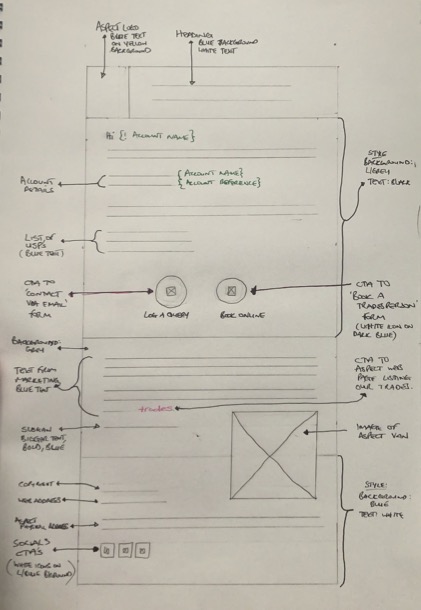 ASPECT LOGO
BLUE TEXT
ON YELLOW
BACKGROUND
HEADING:
BLUE BACKGROUND
WHITE TEXT
Hi {ACCOUNT NAME}
STYLE
BACKGROUND:
L/GREY
TEXT: BLACK
ACCOUNT
DETAILS
{ACCOUNT NAME}
{ACCOUNT REFERENCE}
LIST OF
USPS
(BLUE TEXT)
CTA TO
'CONTACT
VIA EMAIL'
FORM
LOG A QUERY
BOOK ONLINE
CTA TO
'BOOK A
TRADESPERSON'
FORM
(WHITE ICON ON
DARK BLUE)
BACKGROUND:
GREY
TEXT FROM
MARKETING
BLUE TEXT
trades
CTA TO
ASPECT WEB
PAGE LISTING
OUR TRADES.
SLOGAN
BIGGER TEXT,
BOLD, BLUE
IMAGE OF
ASPECT VAN
COPYRIGHT
WEB ADDRESS
ASPECT
POSTAL ADDRESS
STYLE:
BACKGROUND:
BLUE
TEXT: WHITE
SOCIALS
CTA'S
(WHITE ICONS ON
L/BLUE